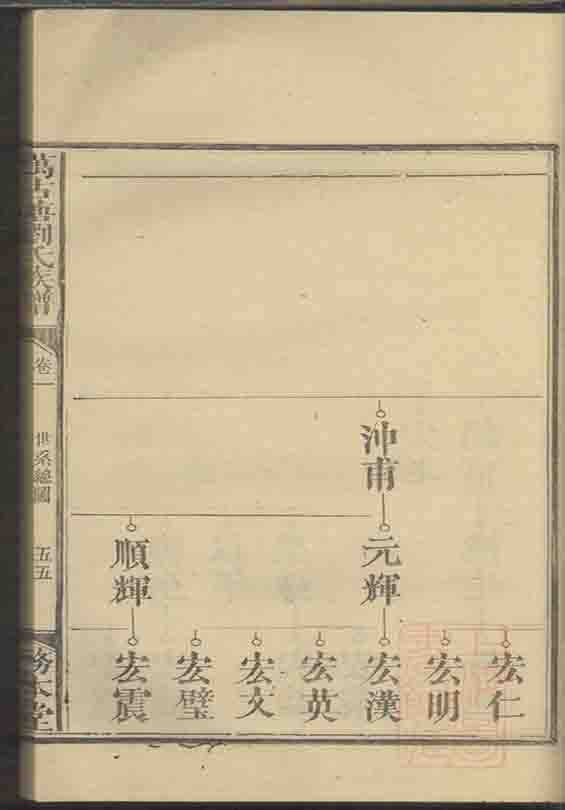 沖甫
元輝
順輝
宏仁
宏明
宏漢
宏英
宏文
宏璧
宏震
萬古塘劉氏族譜
卷一
世系總圖
五五
務本堂